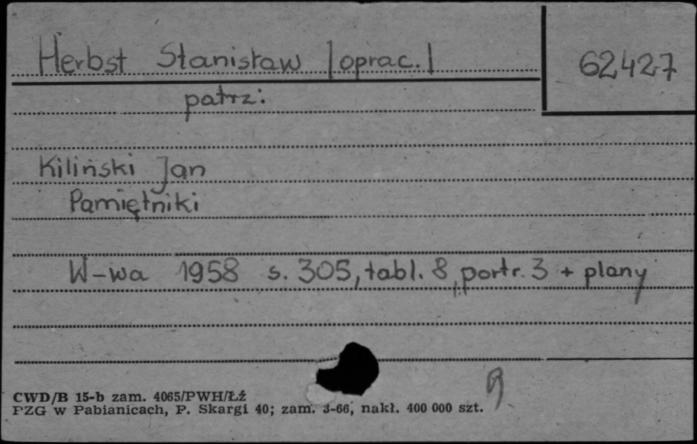 Herbst Stanisław /oprac./ 62427
patrz:
Kiliński Jan
Pamiętniki
W-wa 1958 s. 305, tabl. 8, portr. 3 + plany
CWD/B 15-b zam. 4065/PWH/Łź
PZG w Pabianicach, P. Skargi 40; zam. 3-66, nakł. 400 000 szt.